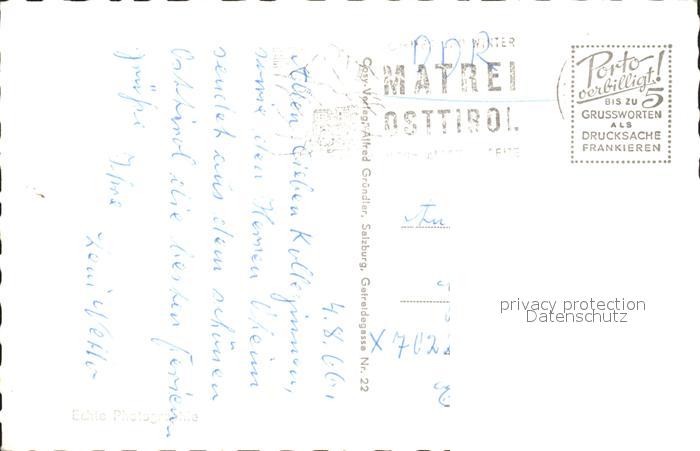 DDR
WINTER
MATREI
OSTTIROL
Porto
verbilligt!
BIS ZU 5
GRUSSWORTEN
ALS
DRUCKSACHE
FRANKIEREN
Cosy-Verlag Alfred Gründler, Salzburg, Getreidegasse Nr. 22
4.8.66.
Allen lieben Kolleginnen,
sowie den Herren
sendet aus dem schönen
Osttirol die besten Ferien
grüße Ihre
An
X 702
privacy protection
Datenschutz
Echte Photographie